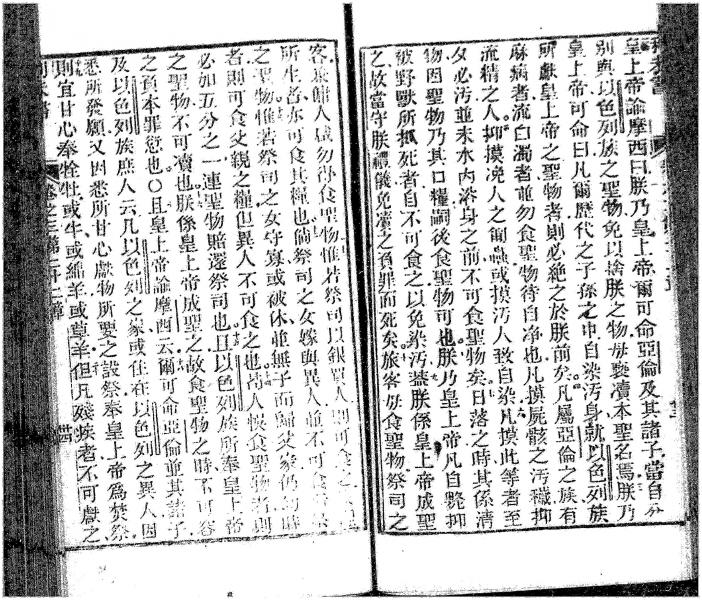 皇上帝諭摩西曰朕乃皇上帝爾可命亞倫及其諸子當自分
別與以色列族之聖物免以捨朕之物毋褻瀆本聖名焉朕乃
皇上帝可命曰凡爾歷代之子孫之中自染污身就以色列族
所獻皇上帝之聖物者則必絕之於朕前矣凡屬亞倫之族有
麻病者流白濁者並勿食聖物待自净也凡摸屍骸之污穢抑
流精之人抑摸凂人之蟲或摸污人致自染凡摸此等者至
夕必污並未水內浴身之前不可食聖物矣日落之時其係清
物因聖物乃其口糧嗣後食聖物可也朕乃皇上帝凡自斃抑
被野獸所抓死者自不可食之以免染污蓋朕係皇上帝成聖
之故當守朕禮儀免瀆之負罪而死矣旅客毋食聖物祭司之
客並傭人咸勿得食聖物惟若祭司以銀買人則可食之
所生者亦可食其糧也倘祭司之女嫁與異人並不可食
之聖物惟若祭司之女守寡或被休並無子而歸父家仍
者則可食父親之糧但異人不可食之也苟人悞食聖物者則
必如五分之一連聖物賠還祭司也且以色列族所奉皇上帝
之聖物不可瀆也朕係皇上帝成聖之故食聖物之時不可容
之負本罪愆也〇且皇上帝諭摩西云爾可命亞倫並其諸子
及以色列族庶人云凡以色列之家或住在以色列之異人因
悉所發願又因悉所甘心獻物所要之設祭奉皇上帝爲焚祭
則宜甘心奉牲牡或牛或綿羊或草羊但凡殘疾者不可獻之